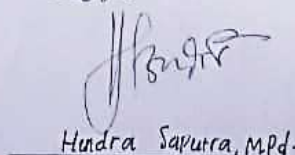 Hendra Saputra, M.Pd.